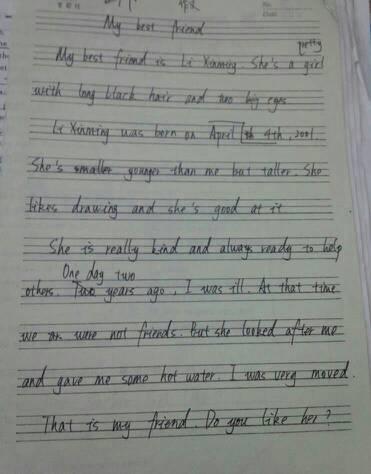 My best friend
My best friend is Li Xinming. She's a pretty girl
with long black hair and two big eyes
Li Xinming was born on April 4th, 2001.
She's smaller younger than me but taller. She
likes drawing and she's good at it.
She is really kind and always ready to help
One day two
others. Two years ago, I was ill. At that time
we were not friends. But she looked after me
and gave me some hot water. I was very moved.
That is my friend. Do you like her?